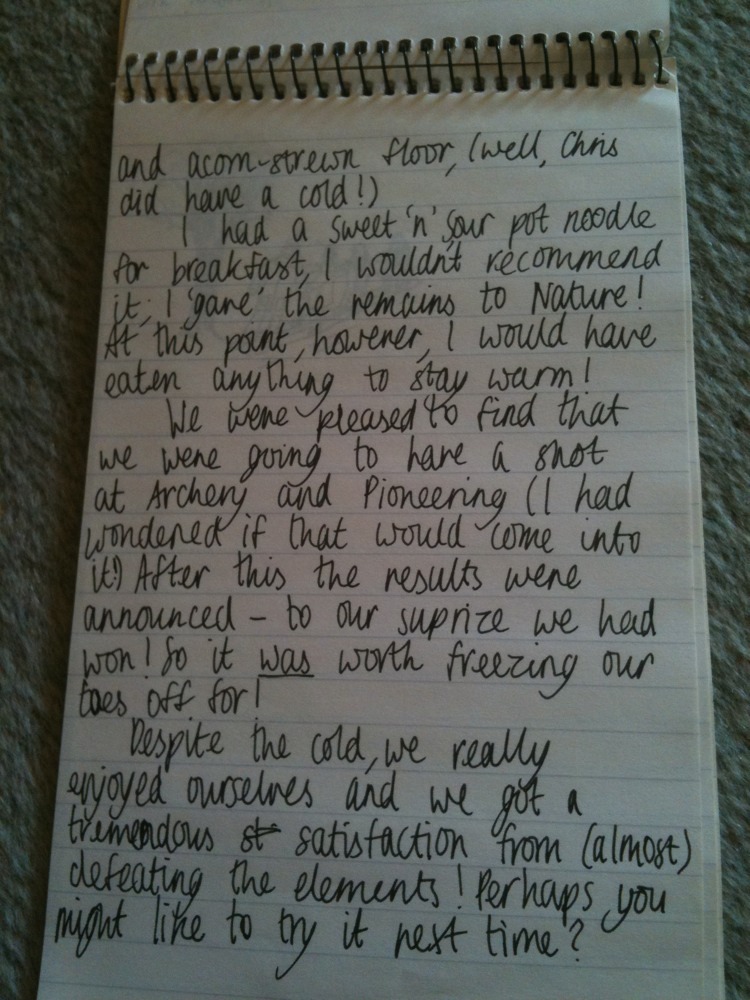 and acorn-strewn floor, (well, Chris
did have a cold!)
I had a sweet 'n' sour pot noodle
for breakfast, I wouldn't recommend
it; I 'gave' the remains to Nature!
At this point, however, I would have
eaten anything to stay warm!
We were pleased to find that
we were going to have a shot
at Archery and Pioneering (I had
wondered if that would come into
it!) After this the results were
announced – to our suprize we had
won! So it was worth freezing our
toes off for!
Despite the cold, we really
enjoyed ourselves and we got a
tremendous st satisfaction from (almost)
defeating the elements! Perhaps you
might like to try it next time?